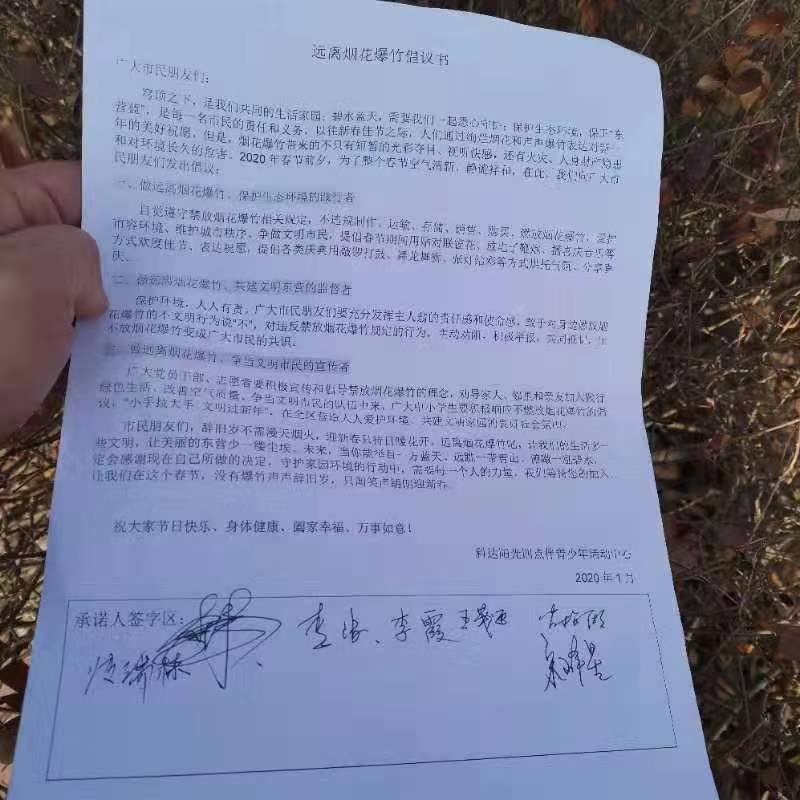 远离烟花爆竹倡议书
广大市民朋友们：
穹顶之下，是我们共同的生活家园；碧水蓝天，需要我们一起悉心守护；保护生态环境，保卫"东
营蓝"，是每一名市民的责任和义务。以往新春佳节之际，人们通过绚烂烟花和声声爆竹表达对新一
年的美好祝愿。但是，烟花爆竹带来的不只有短暂的光彩夺目、视听快感，还有火灾、人身财产隐患
和对环境长久的危害。2020年春节前夕，为了整个春节空气清新、静谧祥和，在此，我们向广大市
民朋友们发出倡议：
一、做远离烟花爆竹、保护生态环境的践行者
自觉遵守禁放烟花爆竹相关规定，不违规制作、运输、存储、销售、购买、燃放烟花爆竹，爱护
市容环境、维护城市秩序、争做文明市民，提倡春节期间用贴对联窗花、放电子鞭炮、播喜庆音乐等
方式欢度佳节、表达祝愿，提倡各类庆典用敲锣打鼓、舞龙舞狮、张灯结彩等方式烘托气氛、分享喜
庆。
二、做远离烟花爆竹、共建文明东营的监督者
保护环境，人人有责，广大市民朋友们要充分发挥主人翁的责任感和使命感，敢于对身边燃放烟
花爆竹的不文明行为说"不"，对违反禁放烟花爆竹规定的行为，主动劝阻、积极举报、共同抵制，让
不放烟花爆竹变成广大市民的共识。
三、做远离烟花爆竹、争当文明市民的宣传者
广大党员干部、志愿者要积极宣传和倡导禁放烟花爆竹的理念，劝导家人、邻里和亲友加入践行
绿色生活、改善空气质量、争当文明市民的队伍中来，广大中小学生要积极响应不燃放烟花爆竹的倡
议，"小手拉大手 文明过新年"，在全区营造人人爱护环境、共建文明家园的良好社会氛围。
市民朋友们，辞旧岁不需漫天烟火，迎新春只待日暖花开，远离烟花爆竹吧，让我们的生活多一
些文明，让美丽的东营少一缕尘埃。未来，当你能坐拥一方蓝天、远眺一带青山、俯瞰一池碧水，
定会感谢现在自己所做的决定，守护家园环境的行动中，需要每一个人的力量，我们等待您的加入
让我们在这个春节，没有爆竹声声辞旧岁，只闻笑声朗朗迎新春。
祝大家节日快乐、身体健康、阖家幸福、万事如意！
科达阳光四点伴青少年活动中心
2020年1月
承诺人签字区：
李霞